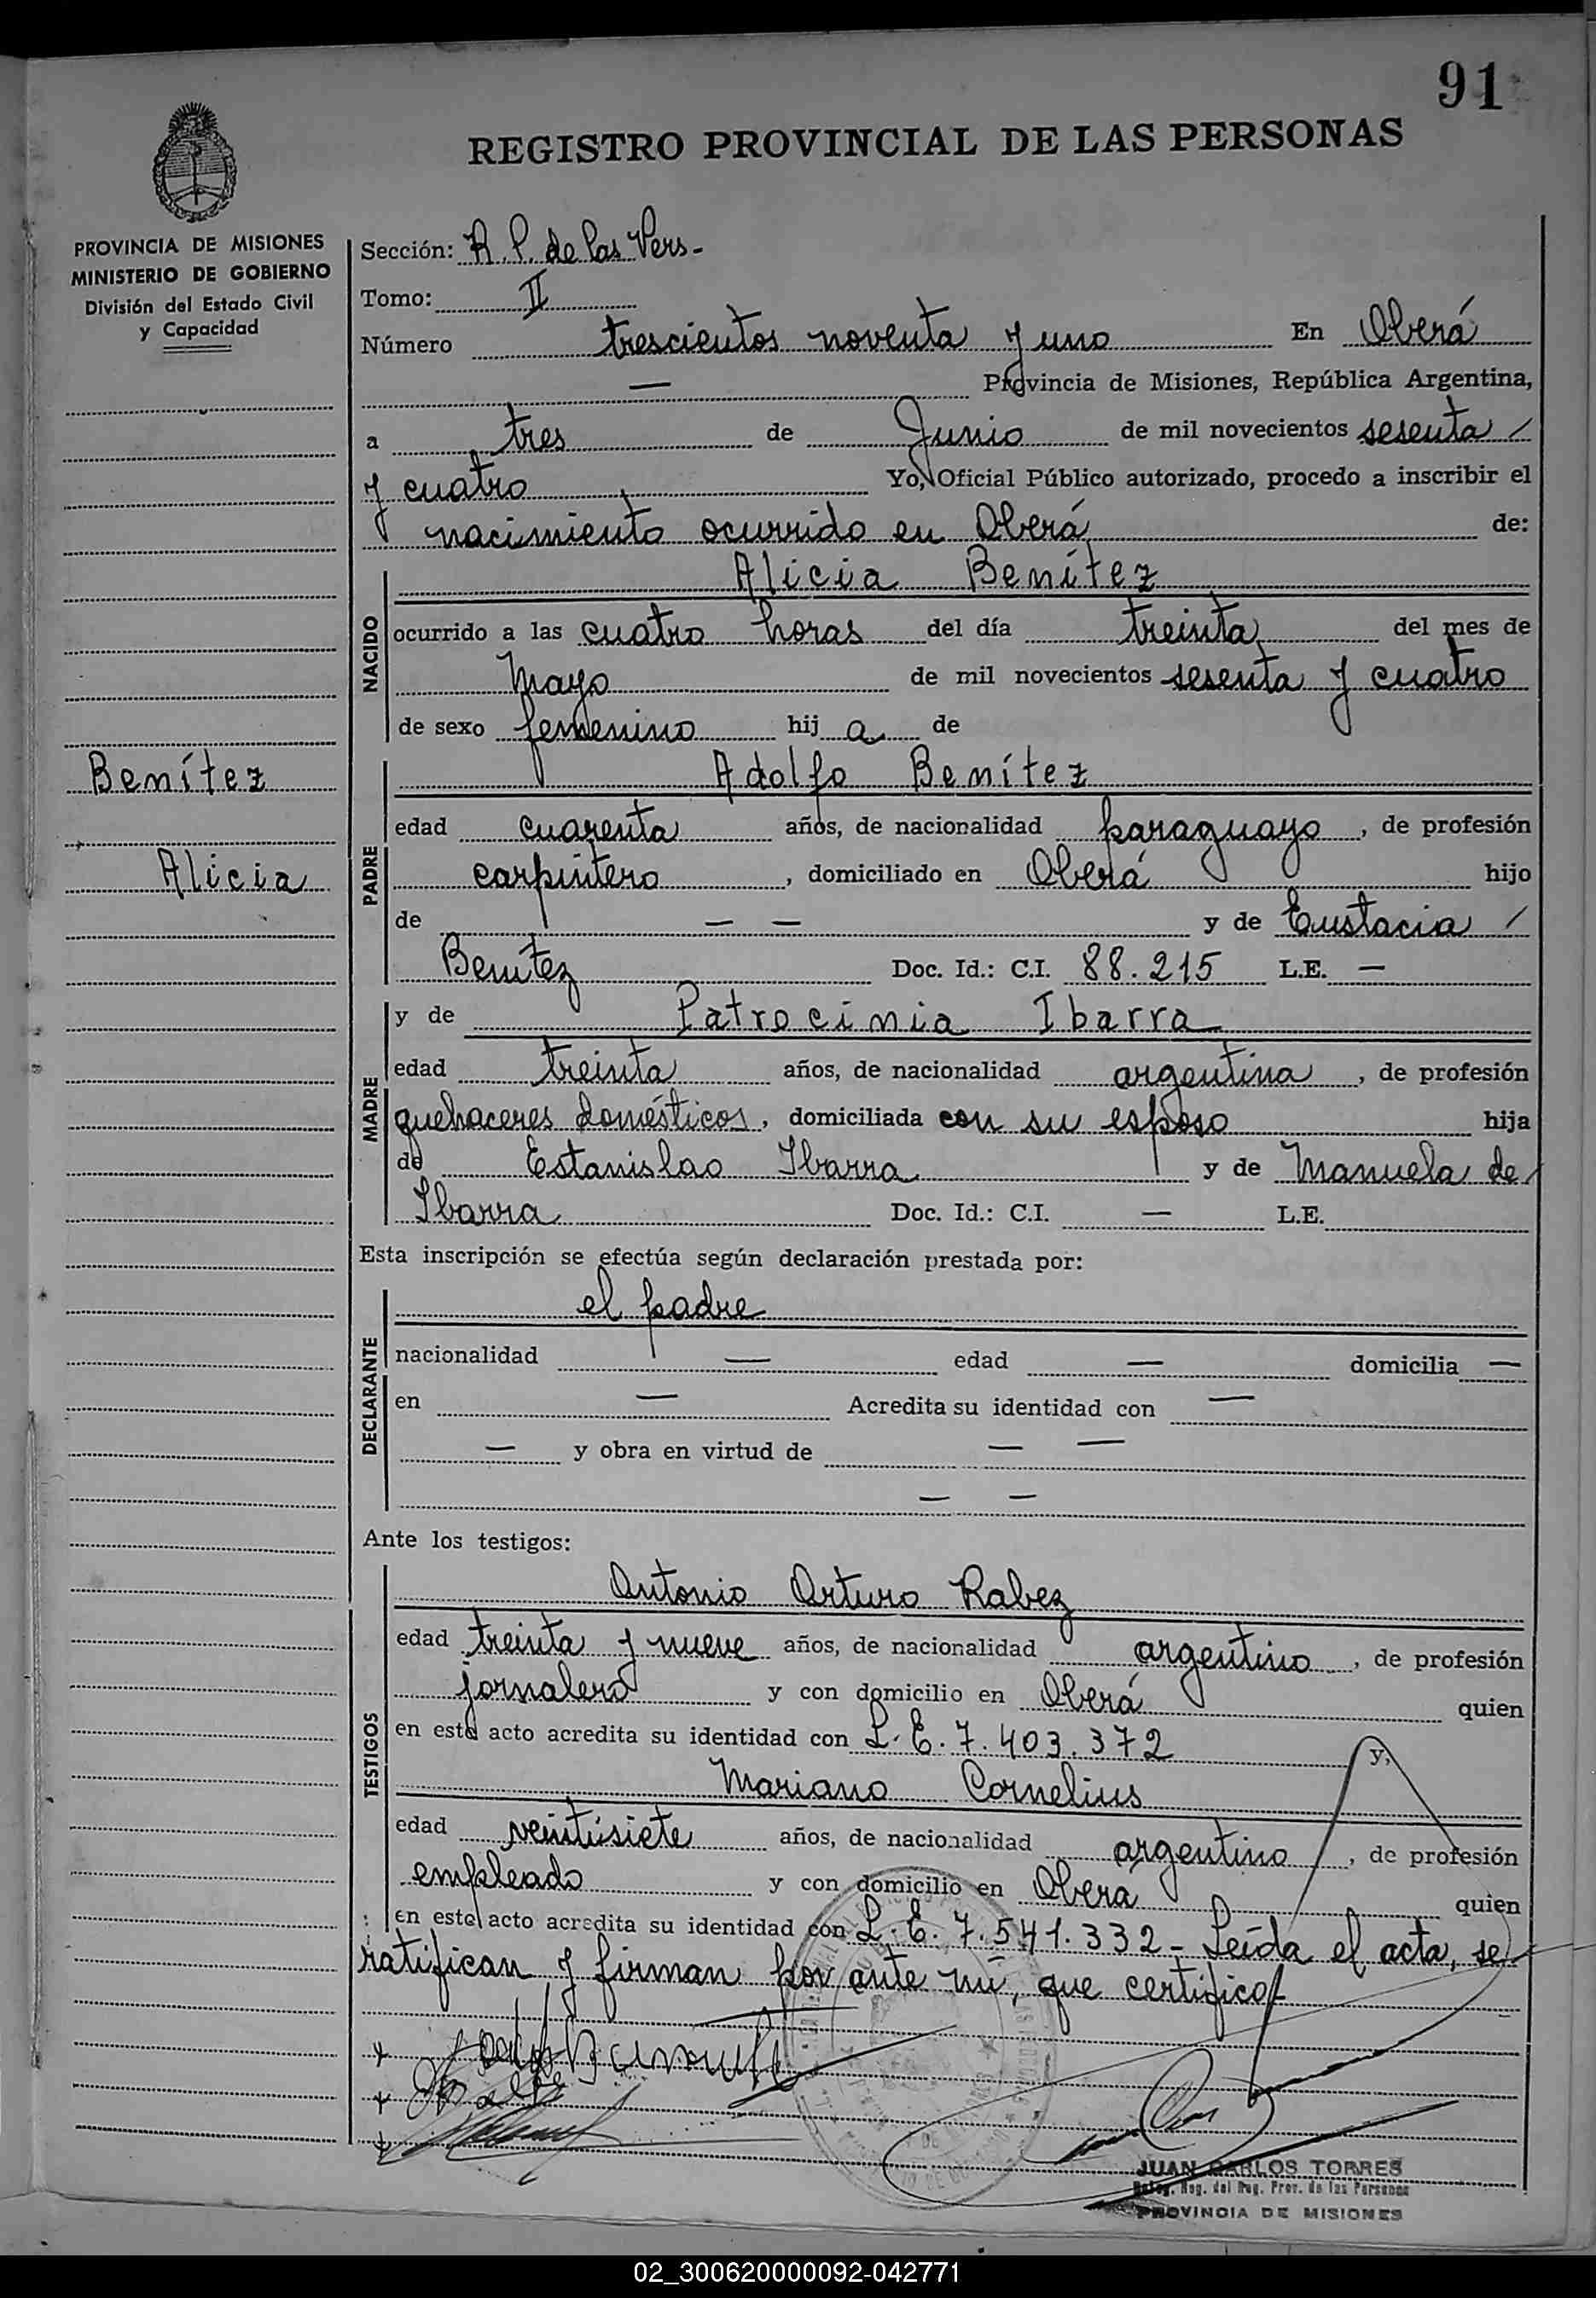 91
REGISTRO PROVINCIAL DE LAS PERSONAS
PROVINCIA DE MISIONES
MINISTERIO DE GOBIERNO
División del Estado Civil
y Capacidad
Sección: R. P. de las Pers-
Tomo: II
Número trescientos noventa y uno En Oberá
— Provincia de Misiones, República Argentina,
a tres de Junio de mil novecientos sesenta /
y cuatro Yo, Oficial Público autorizado, procedo a inscribir el
nacimiento ocurrido en Oberá de:
Alicia Benítez
NACIDO
ocurrido a las cuatro horas del día treinta del mes de
Mayo de mil novecientos sesenta y cuatro
de sexo femenino hij a de
Benítez
Alicia
Adolfo Benítez
PADRE
edad cuarenta años, de nacionalidad paraguayo, de profesión
carpintero, domiciliado en Oberá hijo
de — — y de Eustacia /
Benítez Doc. Id.: C.I. 88.215 L.E. —
y de Patrocinia Ibarra
MADRE
edad treinta años, de nacionalidad argentina, de profesión
quehaceres domésticos, domiciliada con su esposo hija
de Estanislao Ibarra y de Manuela de
Ibarra Doc. Id.: C.I. — L.E.
Esta inscripción se efectúa según declaración prestada por:
el padre
DECLARANTE
nacionalidad — edad — domicilia —
en — Acredita su identidad con —
— y obra en virtud de — —
— —
Ante los testigos:
Antonio Arturo Rabez
TESTIGOS
edad treinta y nueve años, de nacionalidad argentino, de profesión
jornalero y con domicilio en Oberá quien
en este acto acredita su identidad con L.E. 7.403.372 y,
Mariano Cornelius
edad veintisiete años, de nacionalidad argentino, de profesión
empleado y con domicilio en Oberá quien
en este acto acredita su identidad con L.E. 7.541.332- Leída el acta, se
ratifican y firman por ante mí, que certifico/
JUAN CARLOS TORRES
PROVINCIA DE MISIONES
02_300620000092-042771